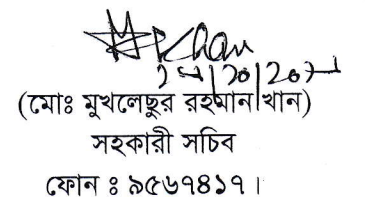 (মোঃ মুখলেছুর রহমান খান)
সহকারী সচিব
ফোন ঃ ৯৫৬৭৪১৭।